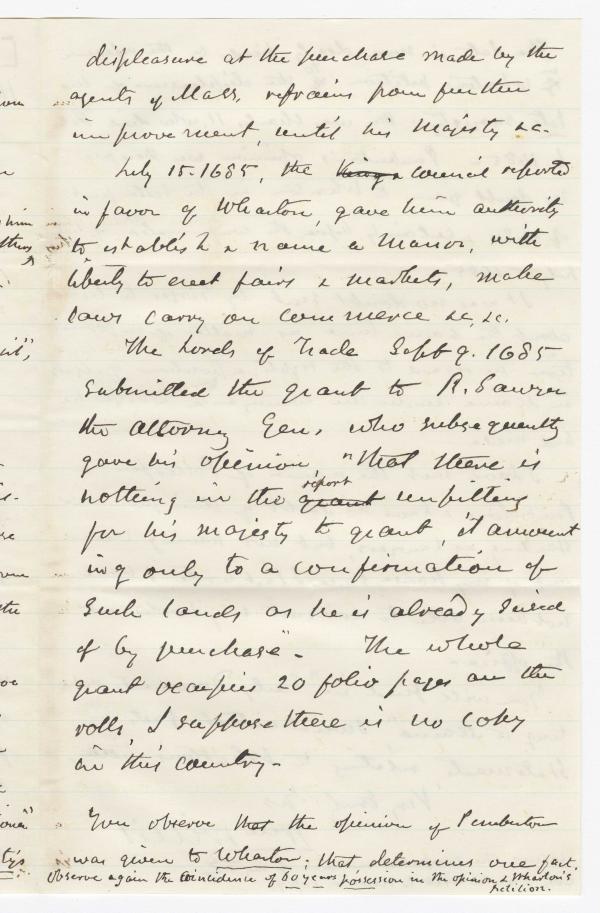 displeasure at the purchase made by the
agents of Mass, refrains from further
improvement, until his Majesty &c.
July 15-1685, the Kings council reported
in favor of Wharton, gave him authority
to establish & name a Manor, with
liberty to erect fairs & markets, make
laws carry on commerce &c, &c.
The Lords of Trade Sept 9. 1685
submitted the grant to R. Sawyer
the Attorney Gen, who subsequently
gave his opinion, "that there is
nothing in the grant report unfitting
for his majesty to grant, it amount
ing only to a confirmation of
such lands as he is already seized
of by purchase". The whole
grant occupies 20 folio pages on the
rolls, I suppose there is no coby
in this country-
You observe that the opinion of Pemberton
was given to Wharton; that determines one fact.
Observe again the coincidence of 60 years possession in the opinion & Wharton's
petition.